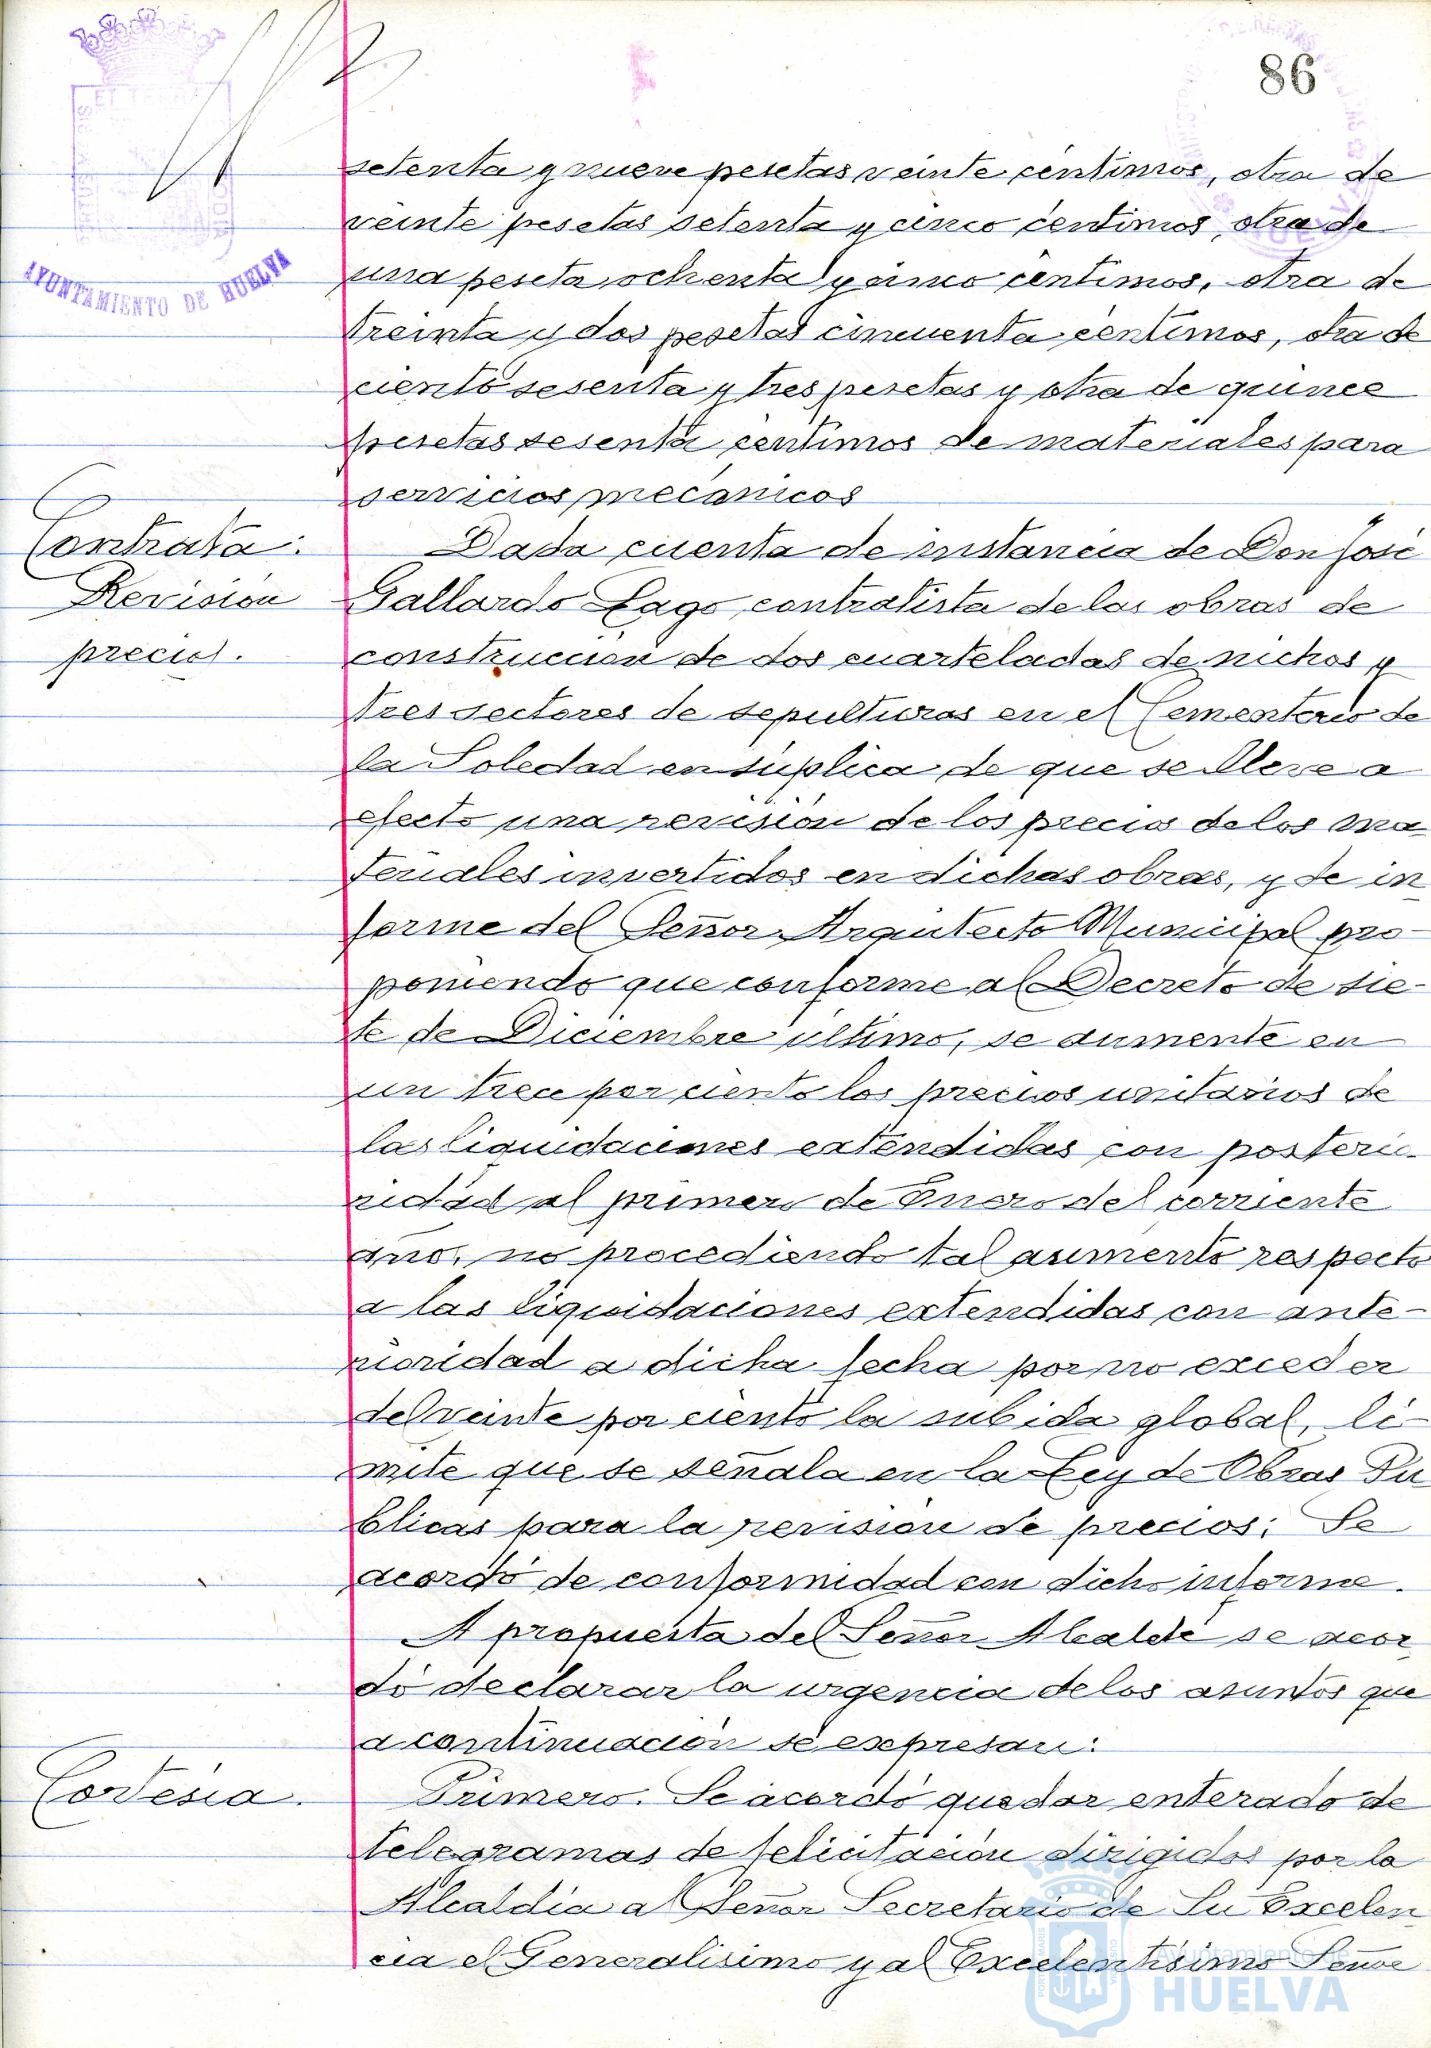 86
AYUNTAMIENTO DE HUELVA
setenta y nueve pesetas veinte céntimos, otra de
veinte pesetas setenta y cinco centimos, otra de
una peseta ochenta y cinco centimos, otra de
treinta y dos pesetas cincuenta centimos, otra de
ciento sesenta y tres pesetas y otra de quince
pesetas sesenta centimos de materiales para
servicios mecánicos
Contrata:
Revisión
precios.
Dada cuenta de instancia de Don José
Gallardo Lago contratista de las obras de
construccion de dos cuarteladas de nichos y
tres sectores de sepulturas en el Cementerio de
la Soledad en súplica de que se lleve a
efecto una revisión de los precios de los ma
teriales invertidos en dichas obras, y de in
forme del Señor Arquitecto Municipal pro-
poniendo que conforme al Decreto de sie-
te de Diciembre último, se aumente en
un trece por ciento los precios unitarios de
las liquidaciones extendidas con posterio-
ridad al primero de Enero del corriente
año, no procediendo tal aumento respecto
a las liquidaciones extendidas con ante-
rioridad a dicha fecha por no exceder
del veinte por ciento la subida global, lí-
mite que se señala en la Ley de Obras Pú
blicas para la revisión de precios; Se
acordó de conformidad con dicho informe.
A propuesta del Señor Alcalde se acor
dó declarar la urgencia de los asuntos que
a continuación se expresan:
Cortesia.
Primero. Se acordó quedar enterado de
telegramas de felicitación dirigidos por la
Alcaldía al Señor Secretario de Su Excelen
cia el Generalísimo y al Excelentísimo Señor
Ayuntamiento de
HUELVA